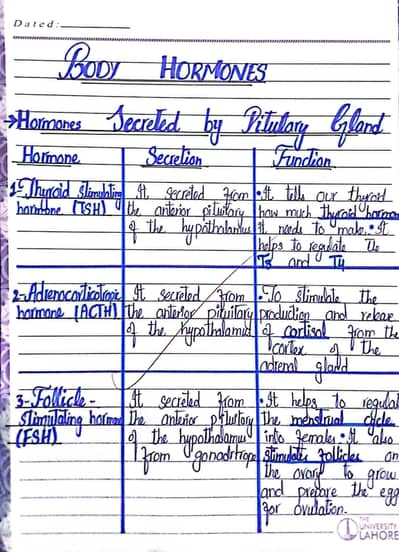 Dated:
BODY HORMONES
→Hormones Secreted by Pitulary Gland
Hormone Secretion Function
1-Thyroid stimulating
hormone (TSH)
It secreted from
the anterior pituitary
of the hypothalamus
•It tells our thyroid
how much thyroid hormon
it needs to make.•It
helps to regulate the
T3 and T4
2-Adrenocorticotropic
hormone (ACTH)
It secreted from
the anterior pituitary
of the hypothalamus
•To stimulate the
production and release
of cortisol from the
cortex of the
adrenal gland
3-Follicle-
stimulating hormone
(FSH)
It secreted from
the anterior pituitary
of the hypothalamus
from gonadotrope
•It helps to regulat
the menstrual cycle
into females•It also
stimulates follicles on
the ovary to grow
and prepare the egg
for ovulation.
THE
UNIVERSITY
LAHORE